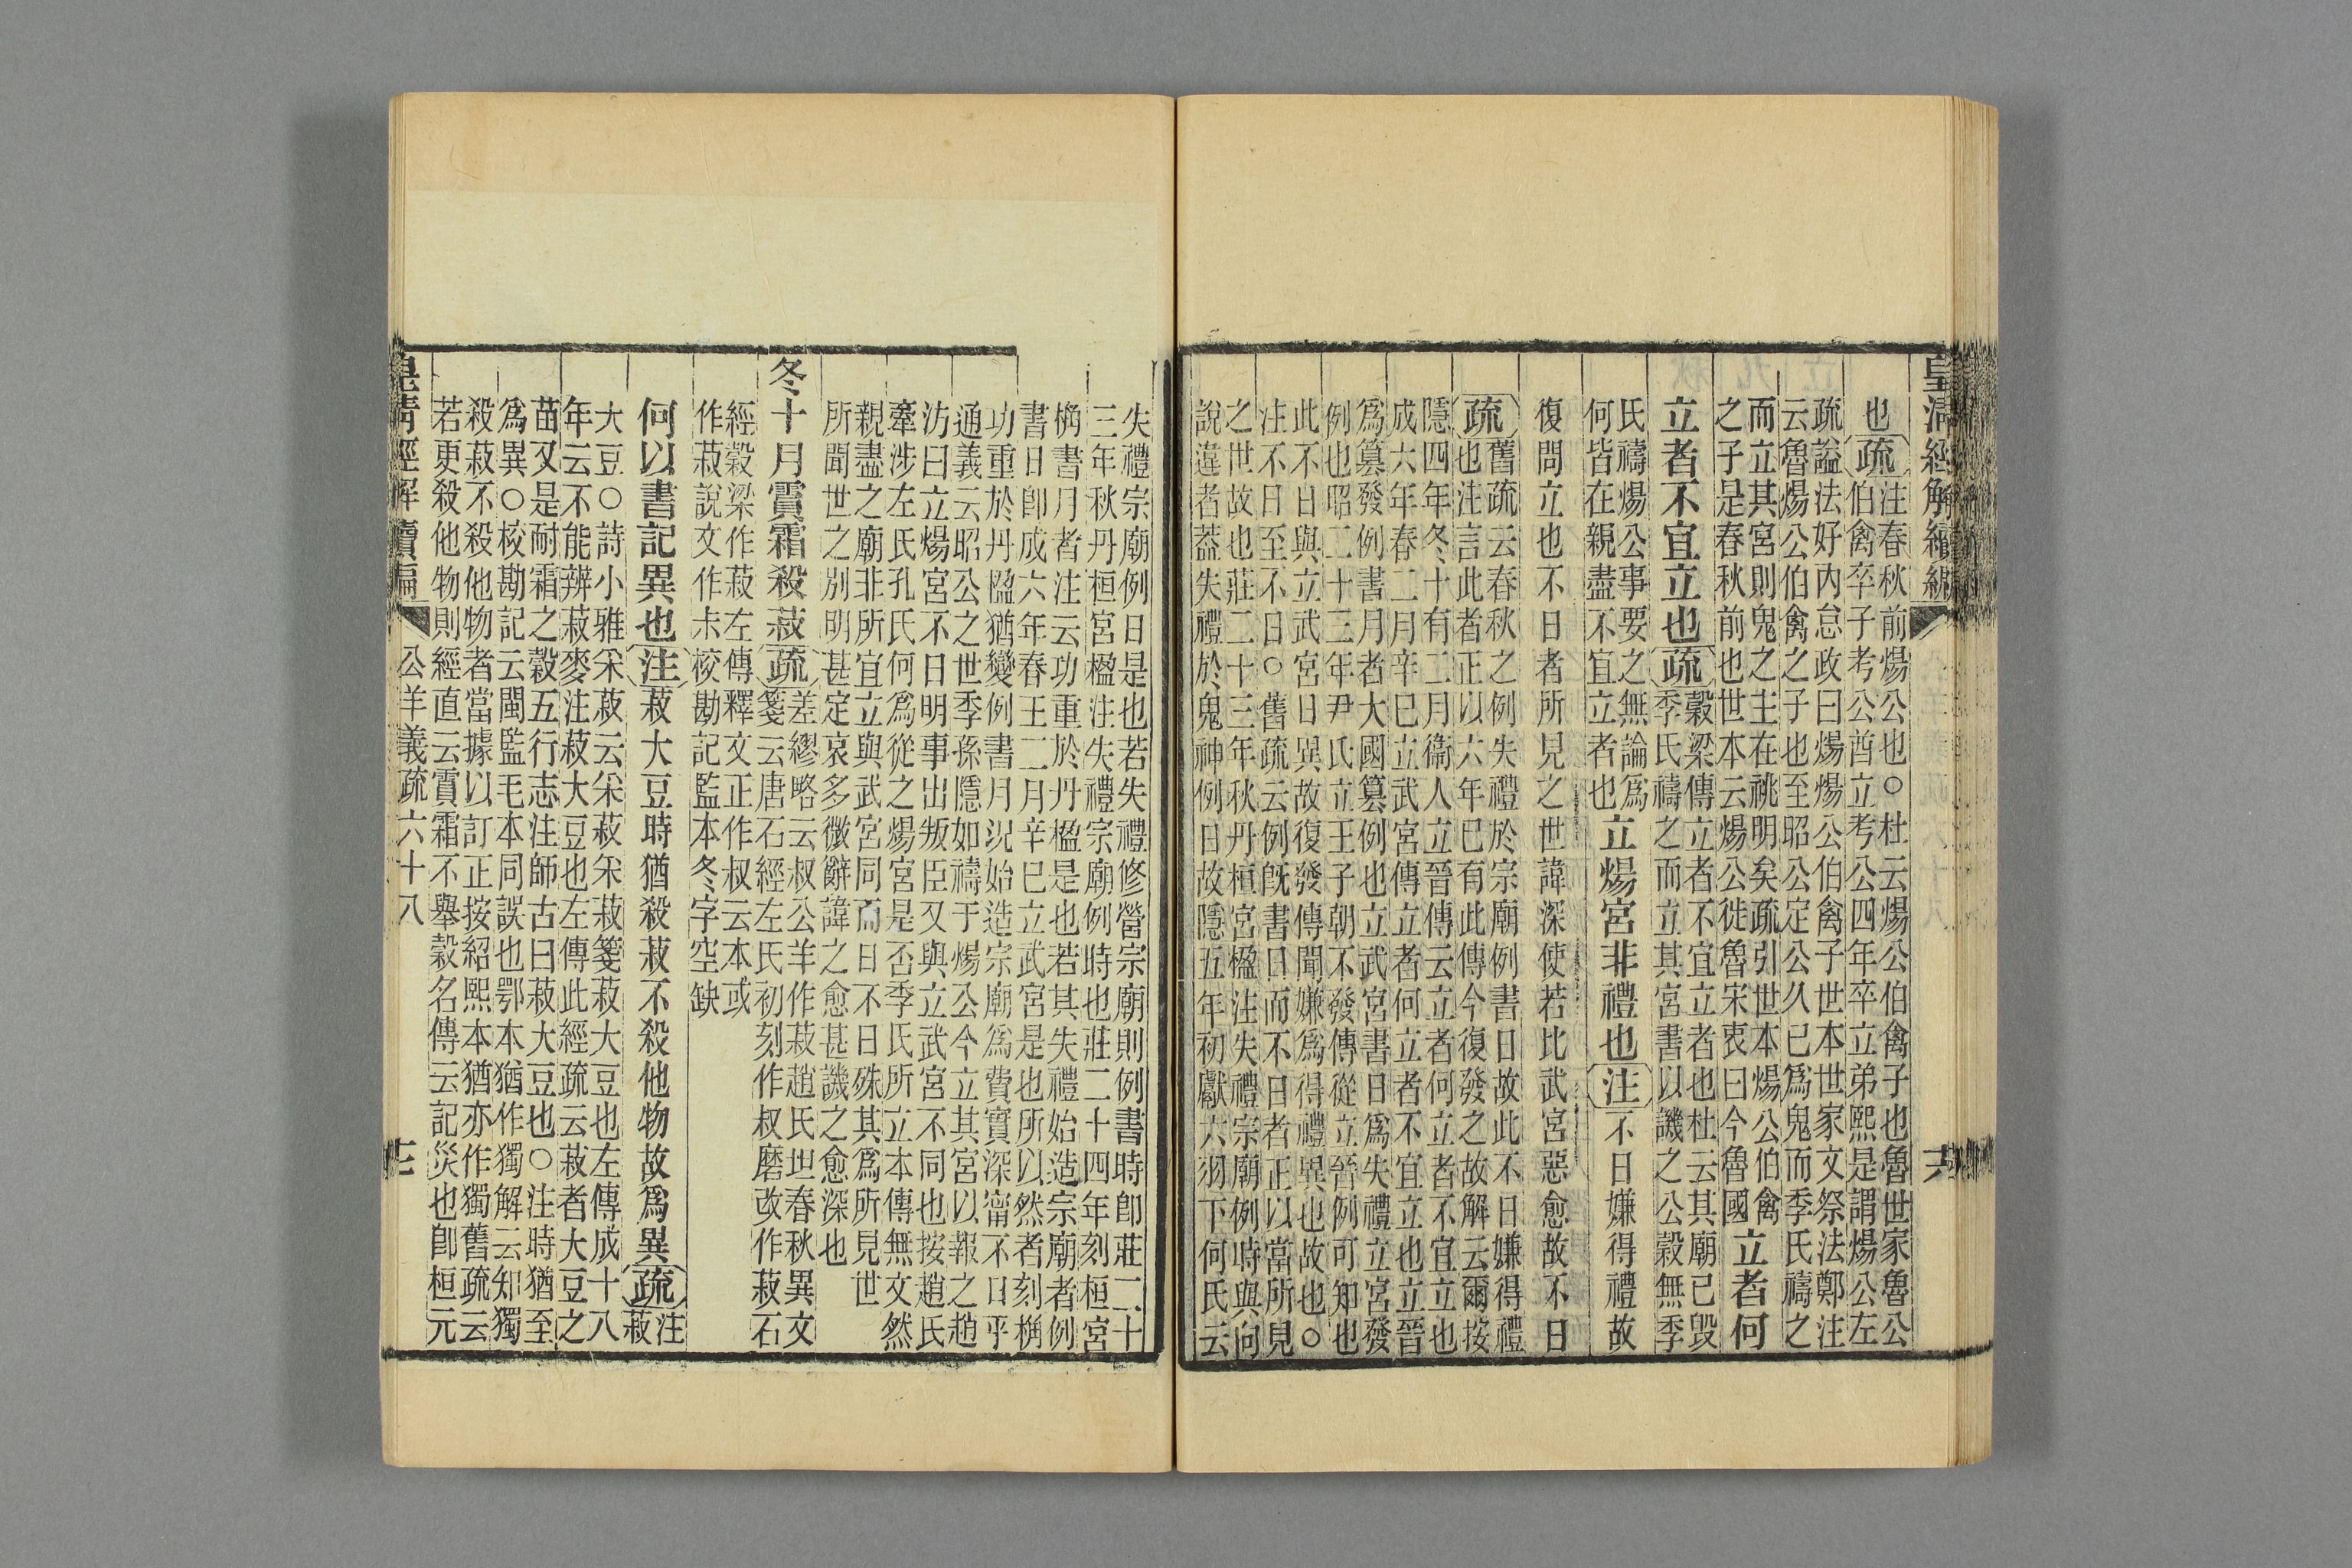 皇清經解續編
也
疏
注春秋前煬公也○杜云煬公伯禽子也魯世家魯公
伯禽卒子考公酋立考公四年卒立弟熙是謂煬公左
疏謚法好內怠政曰煬煬公伯禽子世本世家文祭法鄭注
云魯煬公伯禽之子也至昭公定公久已爲鬼而季氏禱之
而立其宮則鬼之主在祧明矣疏引世本煬公伯禽
之子是春秋前也世本云煬公徙魯宋衷曰今魯國
立者何
立者不宜立也
疏
穀梁傳立者不宜立者也杜云其廟已毀
季氏禱之而立其宮書以譏之公穀無季
氏禱煬公事要之無論爲
何皆在親盡不宜立者也
立煬宮非禮也
注
不日嫌得禮故
復問立也不日者所見之世諱深使若比武宮惡愈故不日
疏
舊疏云春秋之例失禮於宗廟例書日故此不日嫌得禮
也注言此者正以六年已有此傳今復發之故解云爾按
隱四年冬十有二月衞人立晉傳云立者何立者不宜立也
成六年春二月辛巳立武宮傳立者何立者不宜立也立晉
爲篡發例書月者大國篡例也立武宮書日爲失禮立宮發
例也昭二十三年尹氏立王子朝不發傳從立晉例可知也
此不日與立武宮日異故復發傳聞嫌爲得禮異也故也○
注不日至不日○舊疏云例既書日而不日者正以當所見
之世故也莊二十三年秋丹桓宮楹注失禮宗廟例時與向
說違者葢失禮於鬼神例日故隱五年初獻六羽下何氏云
六
失禮宗廟例日是也若失禮修營宗廟則例書時卽莊二十
三年秋丹桓宮楹注失禮宗廟例時也莊二十四年刻桓宮
桷書月者注云功重於丹楹是也若其失禮始造宗廟者例
書日卽成六年春王二月辛巳立武宮是也所以然者刻桷
功重於丹楹猶變例書月況始造宗廟爲費實深甯不日乎
通義云昭公之世季孫隱如禱于煬公今立其宮以報之趙
汸曰立煬宮不日明事出叛臣又與立武宮不同也按趙氏
牽涉左氏孔氏何爲從之煬宮是否季氏所立本傳無文然
親盡之廟非所宜立與武宮同而日不日殊其爲所見世
所聞世之別明甚定哀多微辭諱之愈甚譏之愈深也
冬十月霣霜殺菽
疏
差繆略云叔公羊作菽趙氏坦春秋異文
箋云唐石經左氏初刻作叔磨改作菽石
經穀梁作菽左傳釋文正作叔云本或
作菽說文作尗校勘記監本冬字空缺
何以書記異也
注
菽大豆時猶殺菽不殺他物故爲異
疏
注菽
大豆○詩小雅采菽云采菽采菽箋菽大豆也左傳成十八
年云不能辨菽麥注菽大豆也左傳此經疏云菽者大豆之
苗又是耐霜之穀五行志注師古曰菽大豆也○注時猶至
爲異○校勘記云閩監毛本同誤也鄂本猶作獨解云知獨
殺菽不殺他物者當據以訂正按紹熙本猶亦作獨舊疏云
若更殺他物則經直云霣霜不舉穀名傳云記災也卽桓元
皇清經解續編
公羊義疏六十八
七